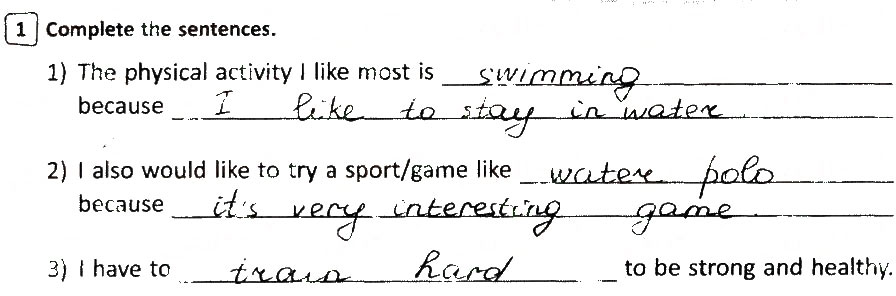 1 Complete the sentences.
1) The physical activity I like most is swimming
because I like to stay in water.
2) I also would like to try a sport/game like water polo
because it's very interesting game.
3) I have to train hard to be strong and healthy.